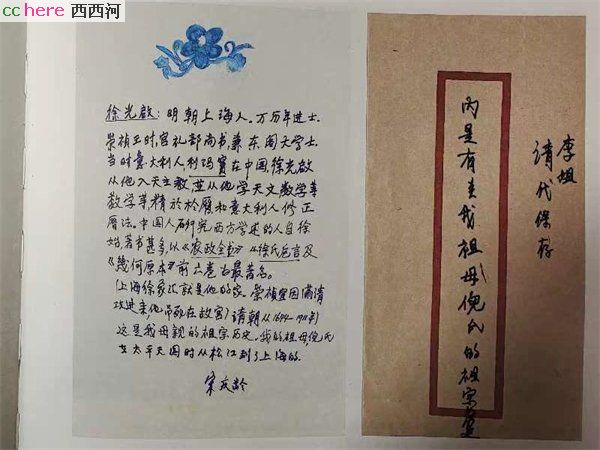 cchere 西西河
徐光啟：明朝上海人．万历年进士．
崇禎王时，官礼部尚书，兼东阁大学士．
当时意大利人利玛竇在中国，徐光啟
从他入天主教並从他学天文，数学等
数学等精於於曆和意大利人修正
曆法．中国人研究西方学述的人自徐
始，著书甚多，以《农政全书》《徐氏庖言》及
《幾何原本》前六卷为最著名．
（上海徐家汇就是他的家．崇禎皇因滿清
攻进来他吊死在故宫）请朝从1644-1911年）
这是我母親的祖宗历史．我的祖母倪氏
在太平天国时从松江到了上海的．
宋庆龄
李姐
请代保存
内是有关我祖母倪氏的祖宗